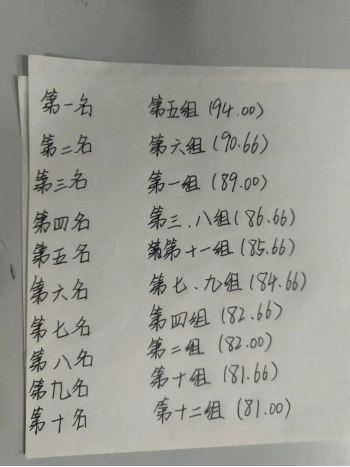 第一名 第五组 (94.00)
第二名 第六组 (90.66)
第三名 第一组 (89.00)
第四名 第三、八组 (86.66)
第五名 第十一组 (85.66)
第六名 第七、九组 (84.66)
第七名 第四组 (82.66)
第八名 第二组 (82.00)
第九名 第十组 (81.66)
第十名 第十二组 (81.00)